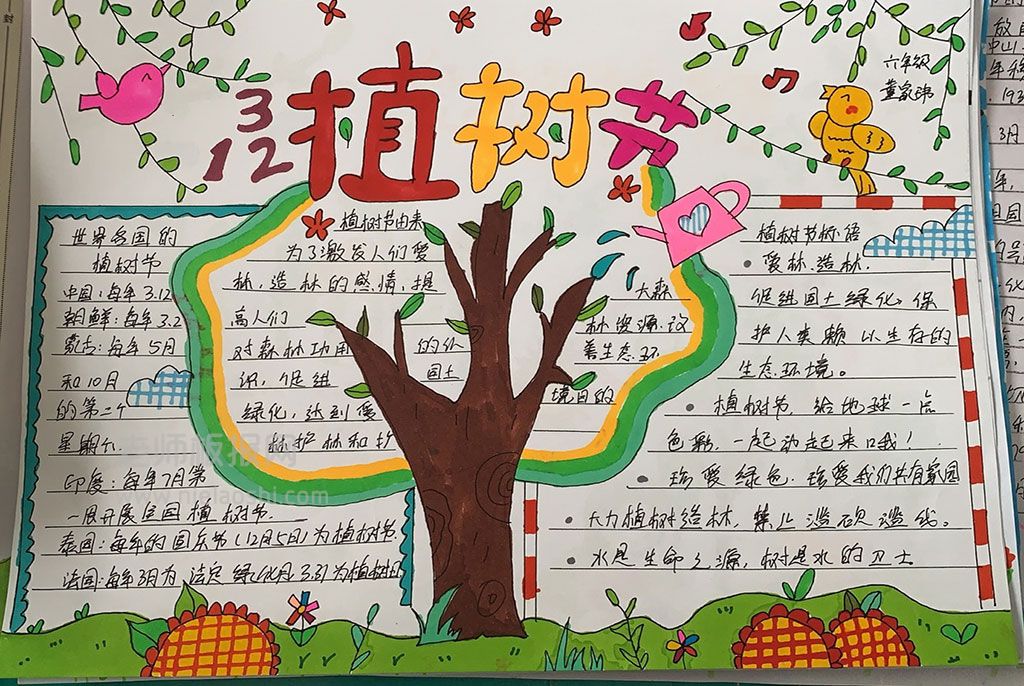 3
12
植树节
六年级
董家玮
世界各国的
植树节
中国:每年3.12
朝鲜:每年3.2
蒙古:每年5月
和10月
的第二个
星期六.
印度:每年7月第
一周开展全国植树节.
泰国:每年的国庆节(12月5日)为植树节.
法国:每年3月为法定绿化月,3.31为植树日
植树节由来
为了激发人们爱
林,造林的感情,提
高人们 大森
对森林功用 的认 林资源.改
识,促进 国土 善生态环
绿化,达到爱 境目的
林护林和护
植树节标语
爱林.造林.
促进国土绿化,保
护人类赖以生存的
生态环境。
植树节.给地球一点
色彩.一起动起来哦!
珍爱绿色.珍爱我们共有家园
大力植树造林,禁止滥砍滥伐。
水是生命之源,树是水的卫士
老师板报网
www.nielaoshi.com